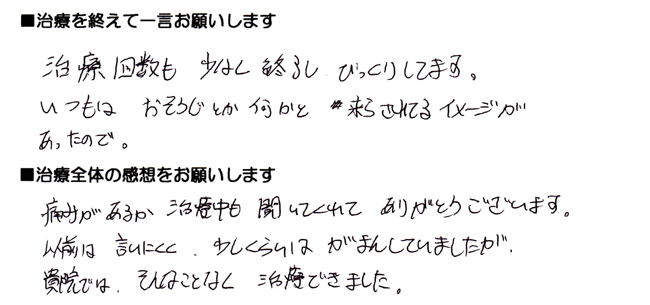 ■治療を終えて一言お願いします
治療回数も 少なく終るし びっくりしてます。
いつもは おそうじとか何かと 来らされてるイメージが
あったので。
■治療全体の感想をお願いします
痛みがあるか 治療中も 聞いてくれて ありがとうございます。
以前は 言いにくく、少しくらいは がまんしていましたが、
貴院では、そんなことなく 治療できました。